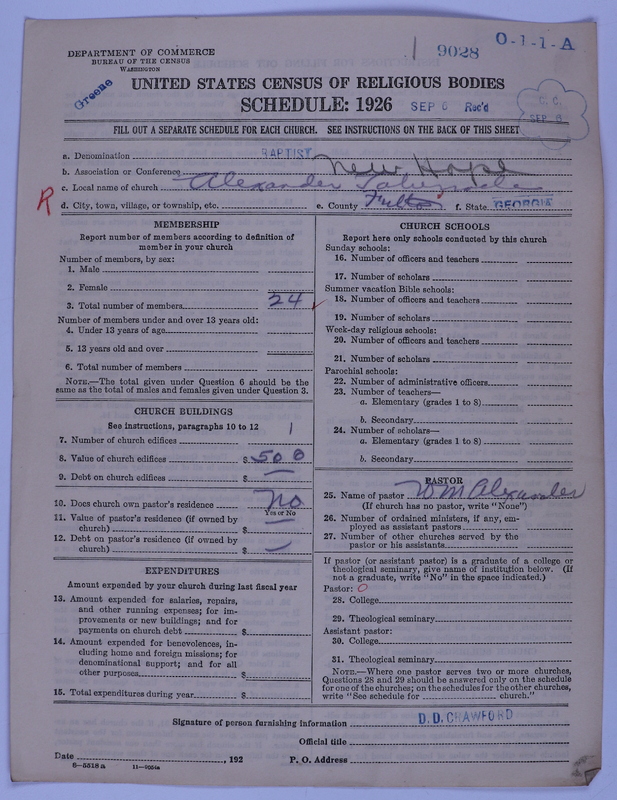 DEPARTMENT OF COMMERCE
BUREAU OF THE CENSUS
WASHINGTON
Greene
1 9028 O-1-1-A
UNITED STATES CENSUS OF RELIGIOUS BODIES
SCHEDULE: 1926 SEP 6 Rec'd
SEP 6
FILL OUT A SEPARATE SCHEDULE FOR EACH CHURCH. SEE INSTRUCTIONS ON THE BACK OF THIS SHEET
a. Denomination BAPTIST
b. Association or Conference New Hope
c. Local name of church Alexander
R d. City, town, village, or township, etc. e. County Fulton f. State GEORGIA
MEMBERSHIP
Report number of members according to definition of
member in your church
Number of members, by sex:
1. Male
2. Female
3. Total number of members 24
Number of members under and over 13 years old:
4. Under 13 years of age
5. 13 years old and over
6. Total number of members
NOTE.—The total given under Question 6 should be the
same as the total of males and females given under Question 3.
CHURCH BUILDINGS
See instructions, paragraphs 10 to 12
7. Number of church edifices 1
8. Value of church edifices $ 500
9. Debt on church edifices $ —
10. Does church own pastor's residence No
Yes or No
11. Value of pastor's residence (if owned by
church) $ —
12. Debt on pastor's residence (if owned by
church) $ —
EXPENDITURES
Amount expended by your church during last fiscal year
13. Amount expended for salaries, repairs,
and other running expenses; for im-
provements or new buildings; and for
payments on church debt $
14. Amount expended for benevolences, in-
cluding home and foreign missions; for
denominational support; and for all
other purposes $
15. Total expenditures during year $
CHURCH SCHOOLS
Report here only schools conducted by this church
Sunday schools:
16. Number of officers and teachers
17. Number of scholars
Summer vacation Bible schools:
18. Number of officers and teachers
19. Number of scholars
Week-day religious schools:
20. Number of officers and teachers
21. Number of scholars
Parochial schools:
22. Number of administrative officers
23. Number of teachers—
a. Elementary (grades 1 to 8)
b. Secondary
24. Number of scholars—
a. Elementary (grades 1 to 8)
b. Secondary
PASTOR
25. Name of pastor Wm Alexander
(If church has no pastor, write "None")
26. Number of ordained ministers, if any, em-
ployed as assistant pastors
27. Number of other churches served by the
pastor or his assistants
If pastor (or assistant pastor) is a graduate of a college or
theological seminary, give name of institution below. (If
not a graduate, write "No" in the space indicated.)
Pastor: O
28. College
29. Theological seminary
Assistant pastor:
30. College
31. Theological seminary
NOTE.—Where one pastor serves two or more churches,
Questions 28 and 29 should be answered only on the schedule
for one of the churches; on the schedules for the other churches,
write "See schedule for church."
Signature of person furnishing information D. D. CRAWFORD
Official title
Date , 192 P. O. Address
8-5518a 11-9054a